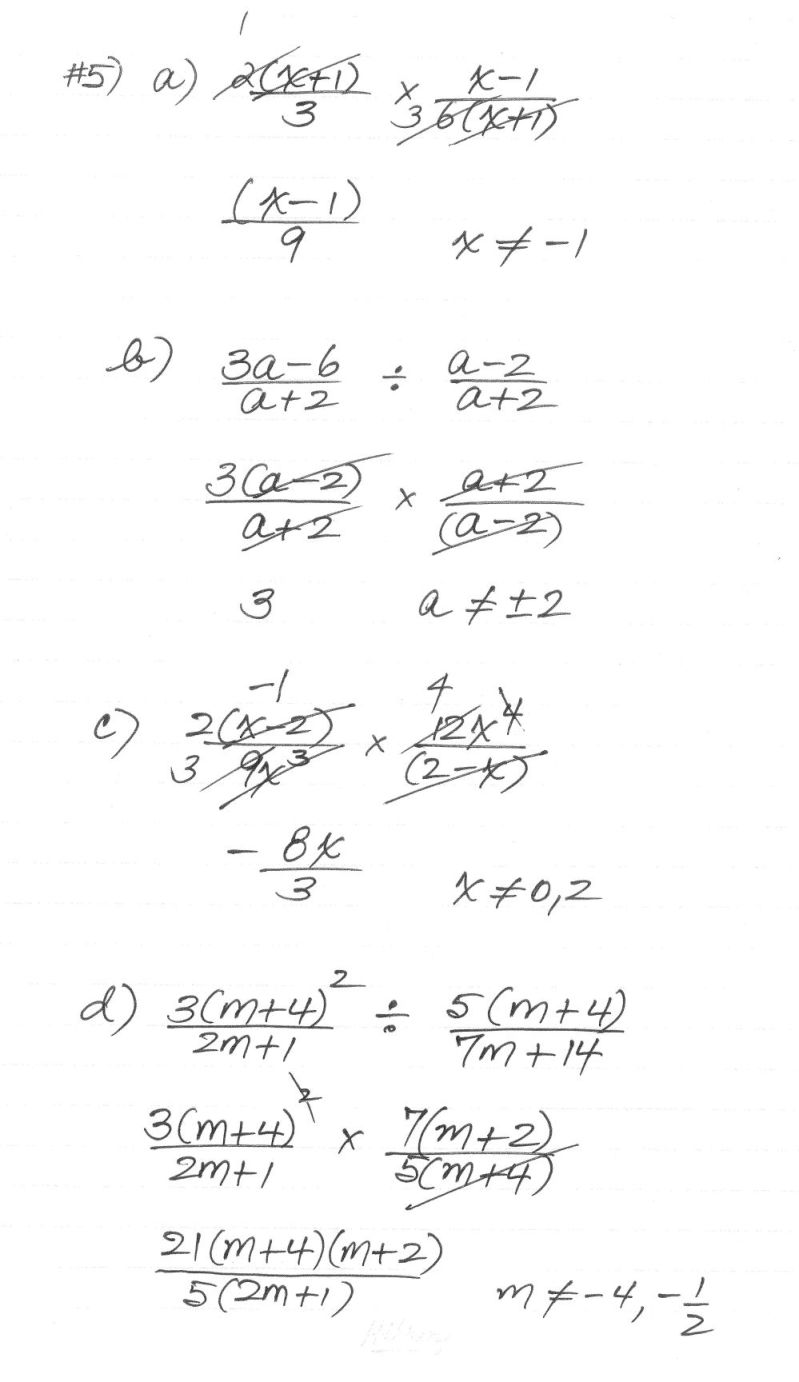 1
#5) a) 2(x+1)/3 × 3 (x-1)/6(x+1)
(x-1)/9 x ≠ -1
b) (3a-6)/(a+2) ÷ (a-2)/(a+2)
3(a-2)/(a+2) × (a+2)/(a-2)
3 a ≠ ±2
-1 4
c) 2(x-2)/3 9x³ × 12x⁴/(2-x)
- 8x/3 x ≠ 0, 2
d) 3(m+4)²/(2m+1) ÷ 5(m+4)/(7m+14)
3(m+4)²/(2m+1) × 7(m+2)/5(m+4)
21(m+4)(m+2)/5(2m+1) m ≠ -4, -1/2